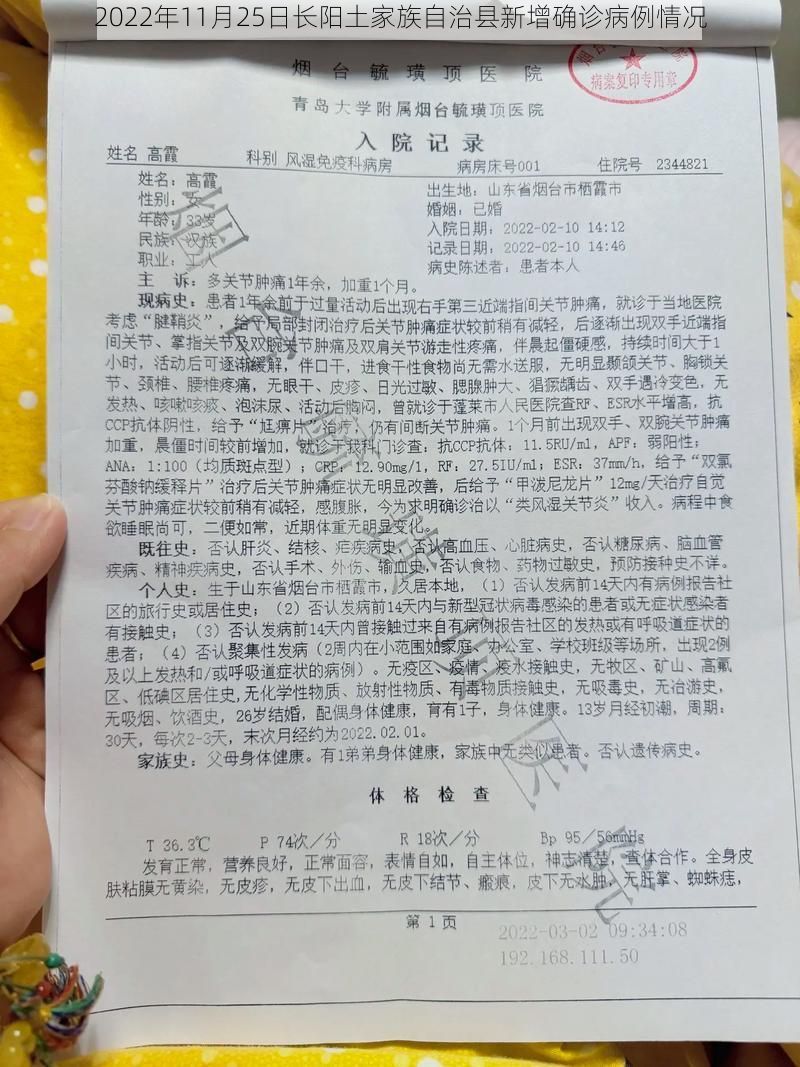 2022年11月25日长阳土家族自治县新增确诊病例情况
烟台毓璜顶医院
病案复印专用章
青岛大学附属烟台毓璜顶医院
入院记录
姓名 高霞 科别 风湿免疫科病房 病房床号001 住院号 2344821
姓名：高霞 出生地：山东省烟台市栖霞市
性别：女 婚姻：已婚
年龄：33岁 入院日期：2022-02-10 14:12
民族：汉族 记录日期：2022-02-10 14:46
职业：工人 病史陈述者：患者本人
主 诉：多关节肿痛1年余，加重1个月。
现病史：患者1年余前于过量活动后出现右手第三近端指间关节肿痛，就诊于当地医院
考虑“腱鞘炎”，给予局部封闭治疗后关节肿痛症状较前稍有减轻，后逐渐出现双手近端指
间关节、掌指关节及双腕关节肿痛及双肩关节游走性疼痛，伴晨起僵硬感，持续时间大于1
小时，活动后可逐渐缓解，伴口干，进食干性食物尚无需水送服，无明显颞颌关节、胸锁关
节、颈椎、腰椎疼痛，无眼干、皮疹、日光过敏、腮腺肿大、猖獗龋齿、双手遇冷变色，无
发热、咳嗽咳痰、泡沫尿、活动后胸闷，曾就诊于蓬莱市人民医院查RF、ESR水平增高，抗
CCP抗体阴性，给予“尪痹片”治疗，仍有间断关节肿痛。1个月前出现双手、双腕关节肿痛
加重，晨僵时间较前增加，就诊于我科门诊查：抗CCP抗体：11.5RU/ml，APF：弱阳性；
ANA：1:100（均质斑点型）；CRP：12.90mg/l，RF：27.5IU/ml；ESR：37mm/h，给予“双氯
芬酸钠缓释片”治疗后关节肿痛症状无明显改善，后给予“甲泼尼龙片”12mg/天治疗自觉
关节肿痛症状较前稍有减轻，感腹胀，今为求明确诊治以“类风湿关节炎”收入。病程中食
欲睡眠尚可，二便如常，近期体重无明显变化。
既往史：否认肝炎、结核、疟疾病史，否认高血压、心脏病史，否认糖尿病、脑血管
疾病、精神疾病史，否认手术、外伤、输血史，否认食物、药物过敏史，预防接种史不详。
个人史：生于山东省烟台市栖霞市，久居本地，（1）否认发病前14天内有病例报告社
区的旅行史或居住史；（2）否认发病前14天内与新型冠状病毒感染的患者或无症状感染者
有接触史；（3）否认发病前14天内曾接触过来自有病例报告社区的发热或有呼吸道症状的
患者；（4）否认聚集性发病（2周内在小范围如家庭、办公室、学校班级等场所，出现2例
及以上发热和/或呼吸道症状的病例）。无疫区、疫情、疫水接触史，无牧区、矿山、高氟
区、低碘区居住史,无化学性物质、放射性物质、有毒物质接触史，无吸毒史，无冶游史，
无吸烟、饮酒史，26岁结婚，配偶身体健康，育有1子，身体健康。13岁月经初潮，周期：
30天，每次2-3天，末次月经约为2022.02.01.
家族史：父母身体健康。有1弟弟身体健康，家族中无类似患者。否认遗传病史。
体格检查
T 36.3℃ P 74次／分 R 18次／分 Bp 95／56mmHg
发育正常，营养良好，正常面容，表情自如，自主体位，神志清楚，查体合作。全身皮
肤粘膜无黄染，无皮疹，无皮下出血，无皮下结节、瘢痕，皮下无水肿，无肝掌、蜘蛛痣，
第 1 页
2022-03-02 09:34:08
192.168.111.50